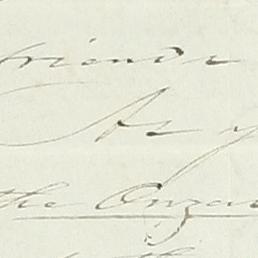 friends
As y
the Organ